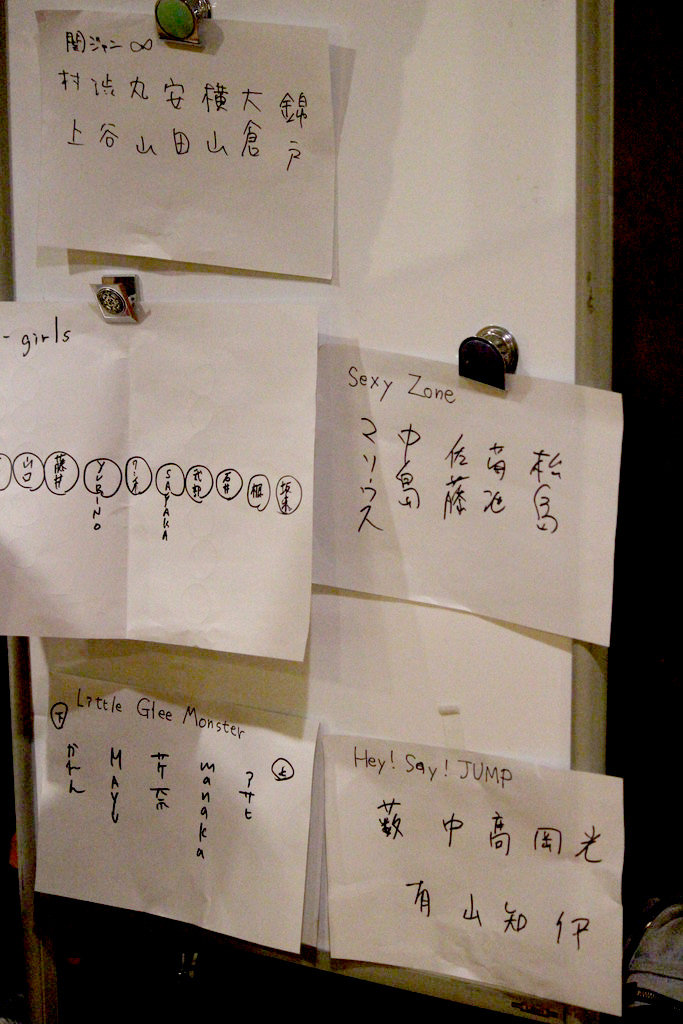 関ジャニ∞
村 渋 丸 安 横 大 錦
上 谷 山 田 山 倉 戸
-girls
山口 藤井 YURINO ワシオ SAYAKA 武部 石井 楓 坂東
Sexy Zone
マリウス 中島 佐藤 菊池 松島
Little Glee Monster
下 上
かれん MAYU 芹奈 manaka アサヒ
Hey! Say! JUMP
薮 中 高 岡 光
有 山 知 伊